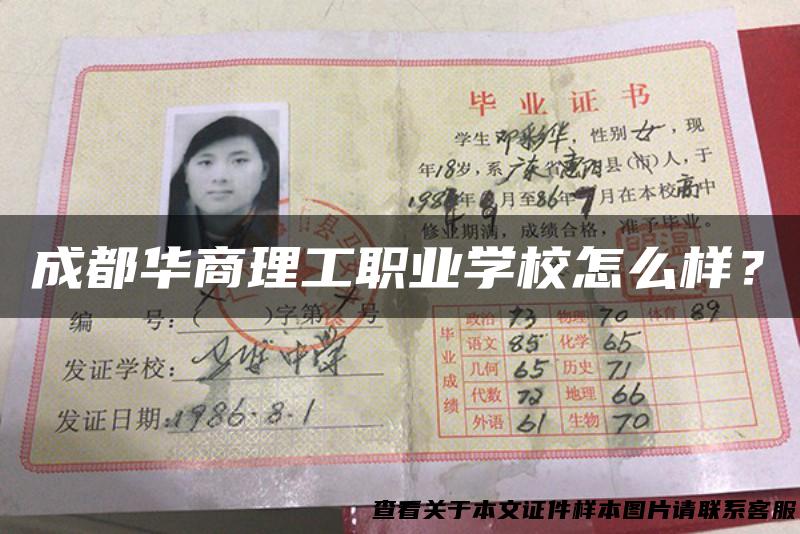 毕业证书
学生邓彩华，性别女，现
年18岁，系广东省惠阳县（市）人，于
月至86年7月在本校高中
修业期满，成绩合格，准予毕业。
成都华商理工职业学校怎么样？
编 号：（ ）字第 号
发证学校：
中学
发证日期：1986.8.1
毕业成绩
政治 73 物理 70 体育 89
语文 85 化学 65
几何 65 历史 71
代数 72 地理 66
外语 61 生物 70
查看关于本文证件样本图片请联系客服